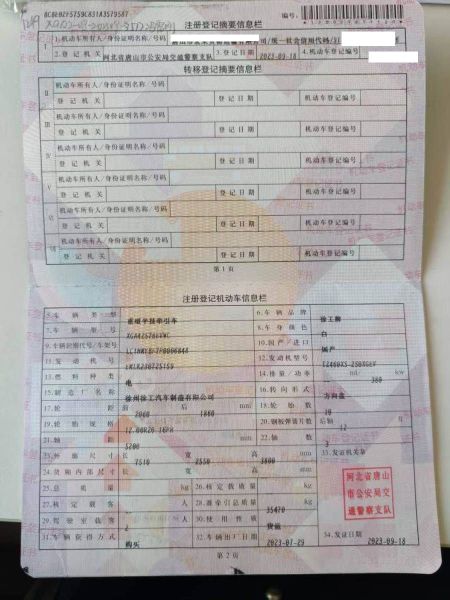 注册登记摘要信息栏
1.机动车所有人/身份证明名称/号码
2.登记机关 河北省唐山市公安局交通警察支队 3.登记日期 2023-09-18 4.机动车登记编号
转移登记摘要信息栏
Ⅱ 机动车所有人/身份证明名称/号码
登记机关 登记日期 机动车登记编号
Ⅲ 机动车所有人/身份证明名称/号码
登记机关 登记日期 机动车登记编号
Ⅳ 机动车所有人/身份证明名称/号码
登记机关 登记日期 机动车登记编号
Ⅴ 机动车所有人/身份证明名称/号码
登记机关 登记日期 机动车登记编号
Ⅵ 机动车所有人/身份证明名称/号码
登记机关 登记日期 机动车登记编号
Ⅶ 机动车所有人/身份证明名称/号码
登记机关 登记日期 机动车登记编号
第1页
注册登记机动车信息栏
5.车辆类型 重型半挂牵引车 6.车辆品牌 徐工牌
7.车辆型号 8.车身颜色 白
9.车辆识别代号/车架号 10.国产/进口 国产
11.发动机号 12.发动机型号
13.燃料种类 电 14.排量/功率 ml/ 380 kw
15.制造厂名称 徐州徐工汽车制造有限公司 16.转向形式 方向盘
17.轮距 前 2060 后 1860 mm 18.轮胎数 10
19.轮胎规格 12.00R20 18PR 20.钢板弹簧片数 后轴 12 片
21.轴距 5200 mm 22.轴数 3
23.外廓尺寸 长 7510 宽 2550 高 3800 mm 33.发证机关章
24.货厢内部尺寸 长 宽 高 mm
25.总质量 kg 26.核定载质量 kg
27.核定载客 人 28.准牵引总质量 35420 kg
29.驾驶室载客 2 人 30.使用性质 货运
31.车辆获得方式 购买 32.车辆出厂日期 2023-07-29
河北省唐山
市公安局交
通警察支队
34.发证日期 2023-09-18
第2页